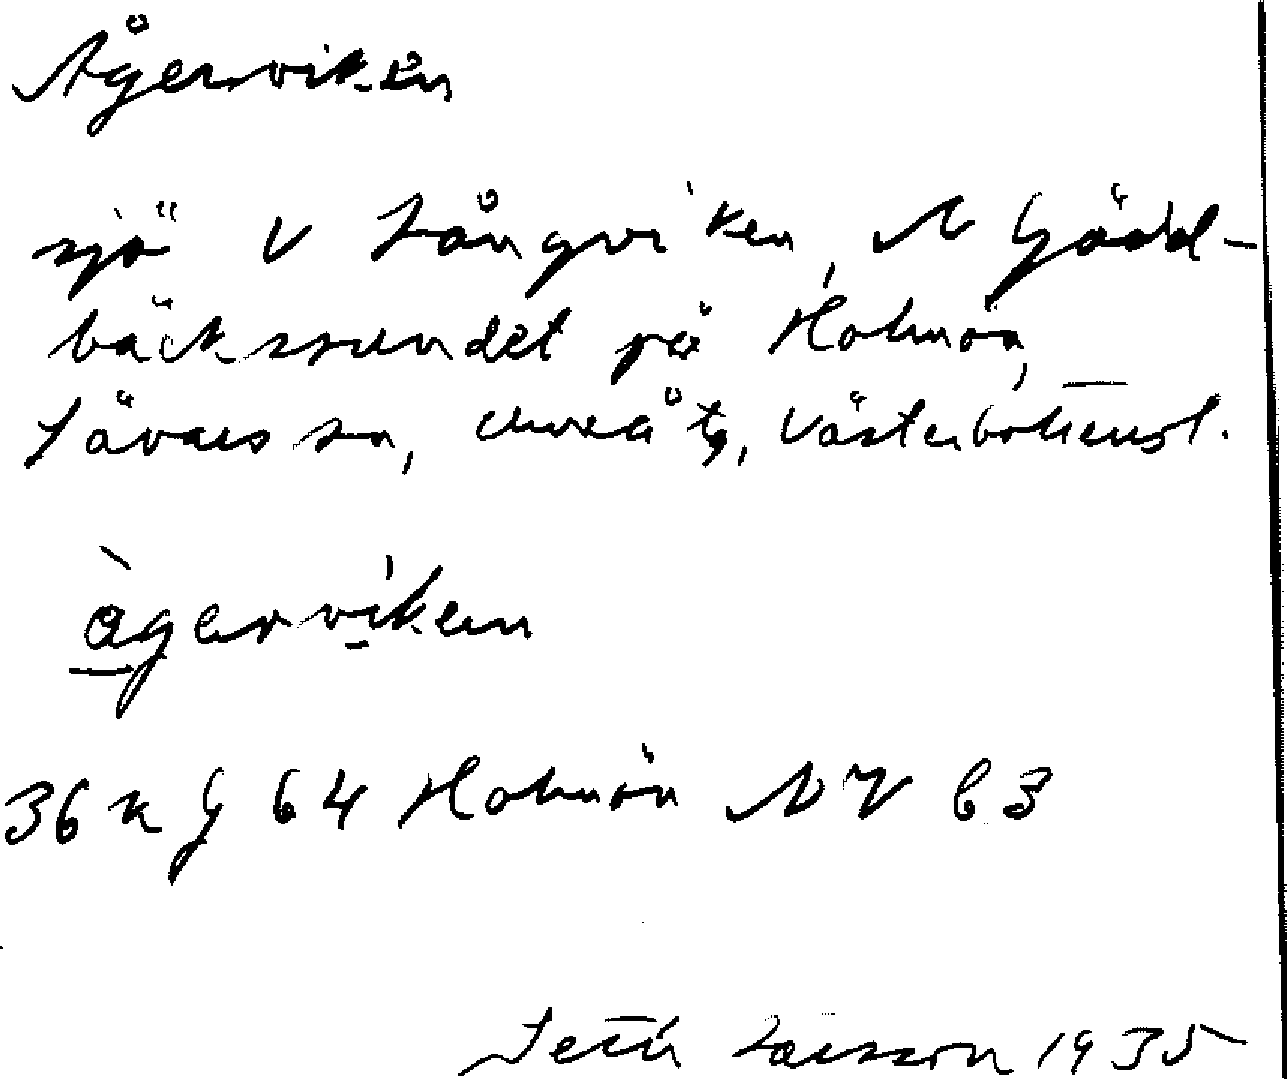 Ågerviken
sjö V Långviken, N Gädd-
bäckssundet på Holmön,
Sävars sn, Umeå tg, Västerbottensl.
ågerviken
36 k G 64 Holmön NV 63
Seth Larsson 1935